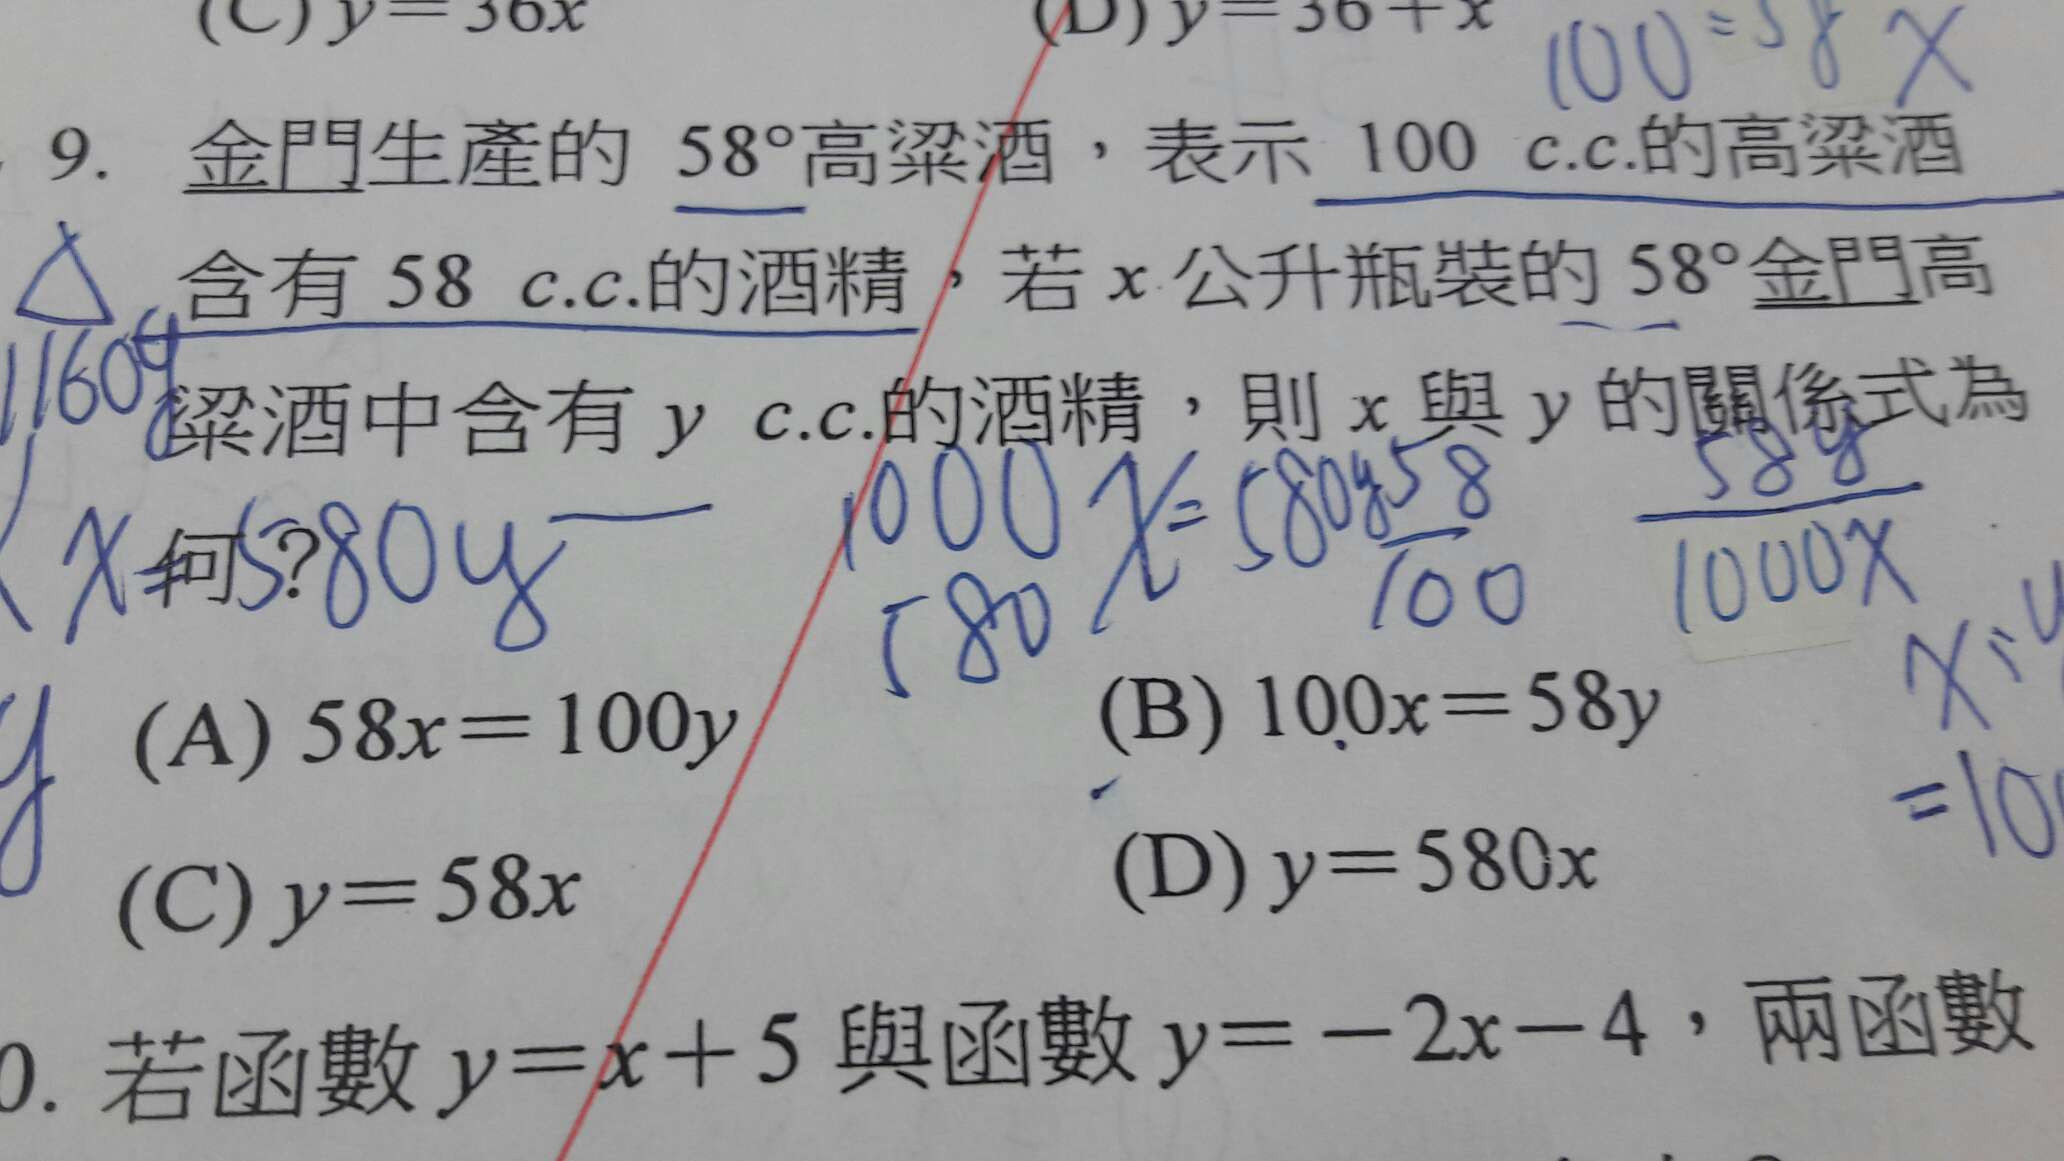 (C) y=36x (D) y=36+x
100=58x
9. 金門生產的 58°高粱酒，表示 100 c.c.的高粱酒
含有 58 c.c.的酒精，若 x 公升瓶裝的 58°金門高
1160y
粱酒中含有 y c.c.的酒精，則 x 與 y 的關係式為
何?
x=580y
1000x=580y
580
58/100
58y/1000x
(A) 58x=100y (B) 100x=58y
=100
(C) y=58x (D) y=580x
0. 若函數 y=x+5 與函數 y=-2x-4，兩函數